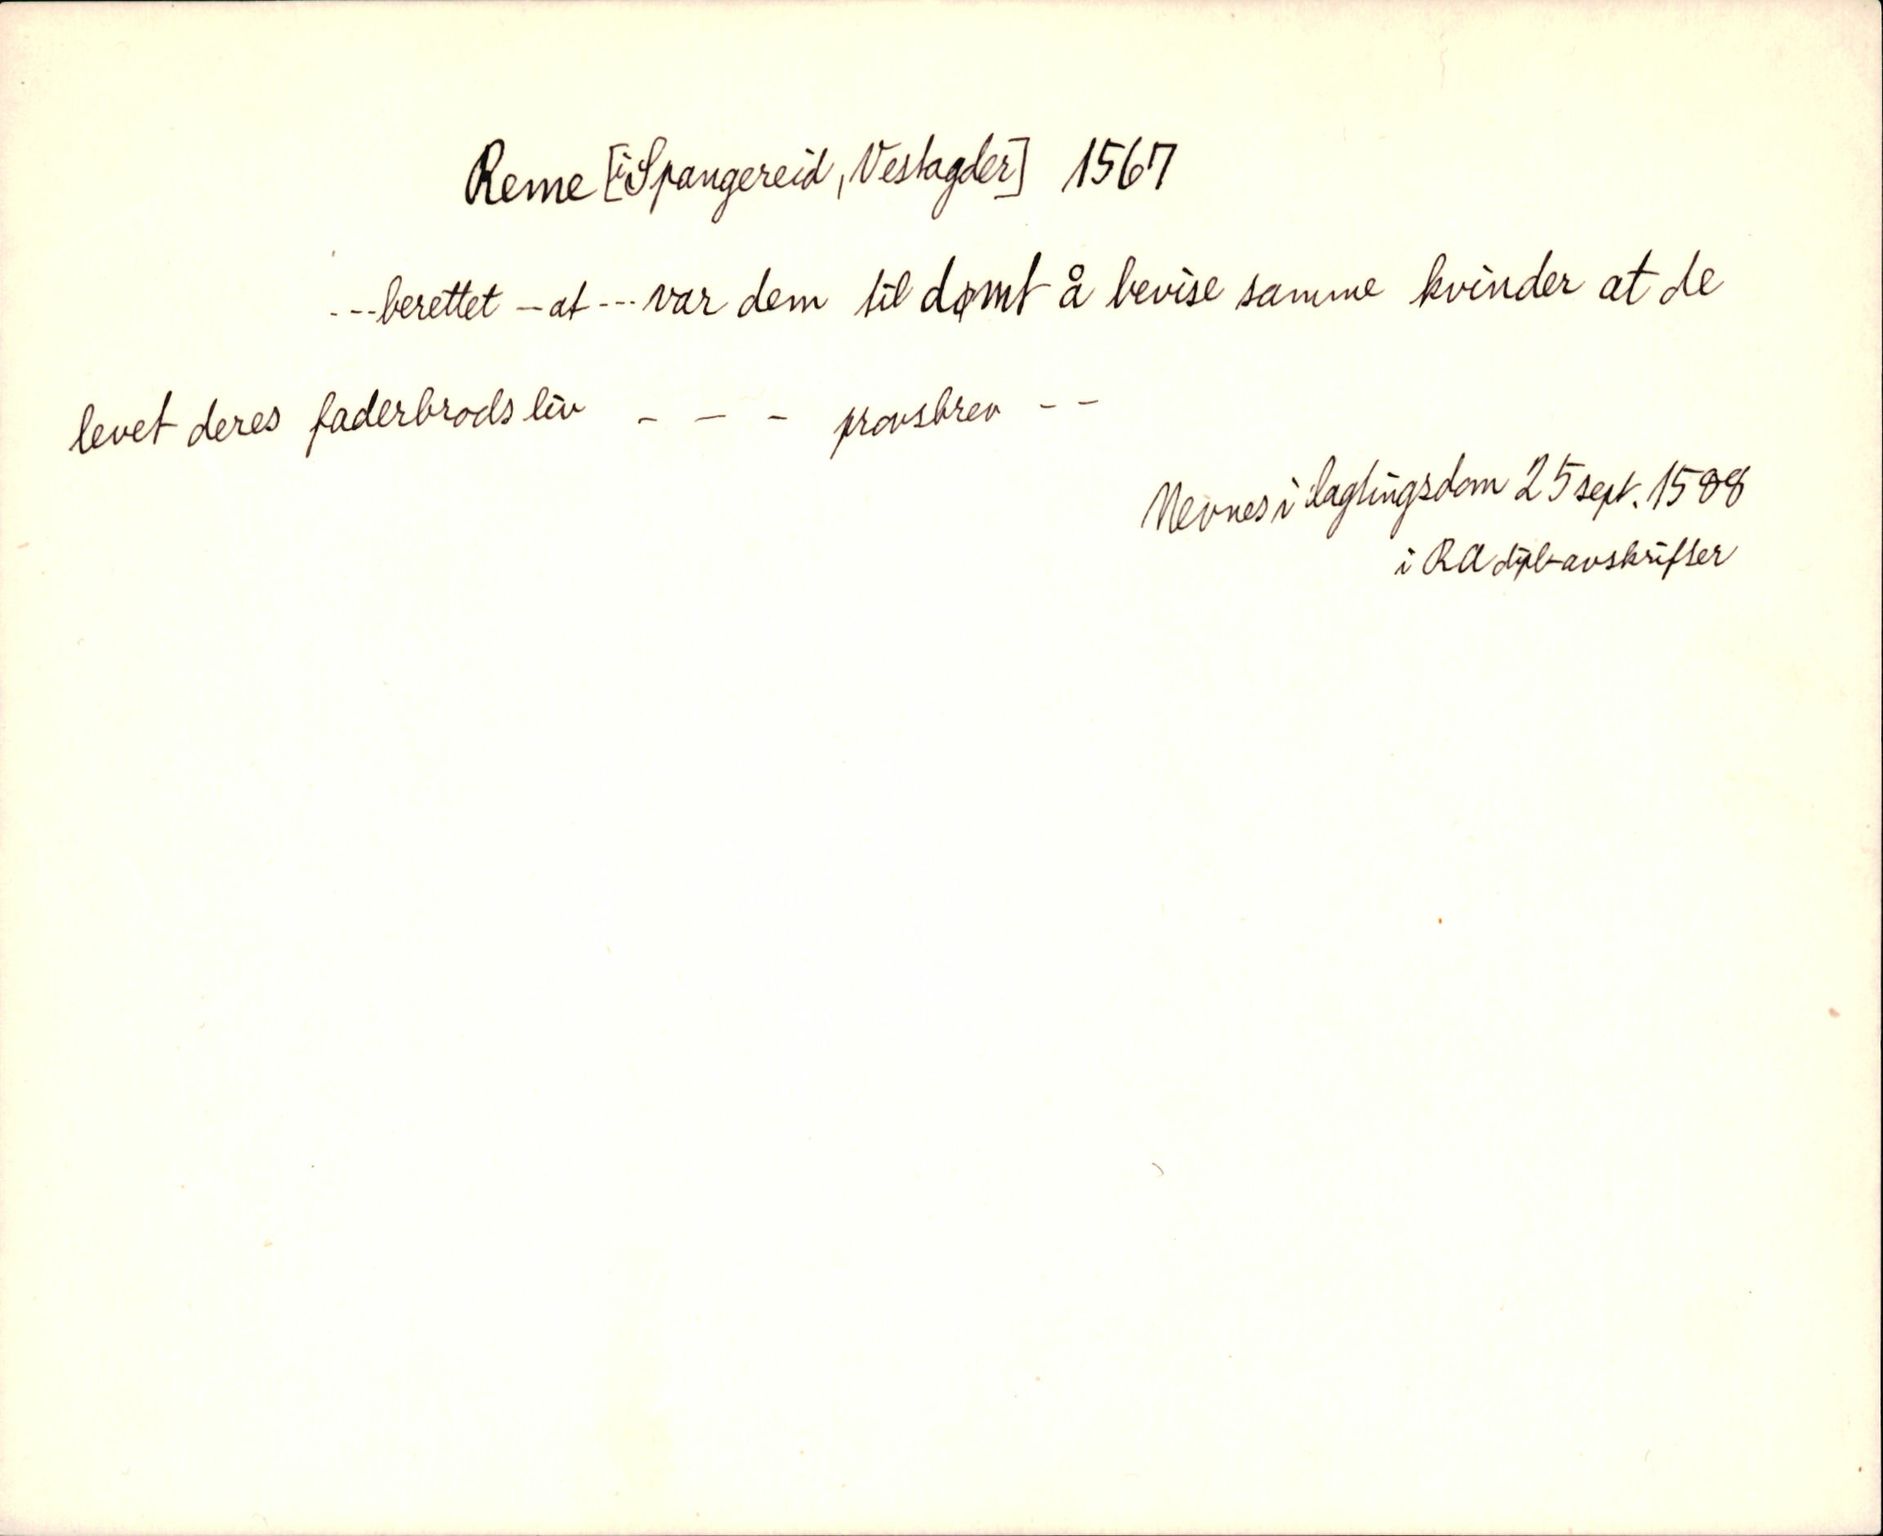 Reme [i Spangereid, Vestagder] 1567
---berettet - at --- var dem til dømt å bevise samme kvinder at de
levet deres faderbrods liv - - - provsbrev - -
Nevnes i lagtingsdom 25 sept. 1588
i RA dipl-avskrifter